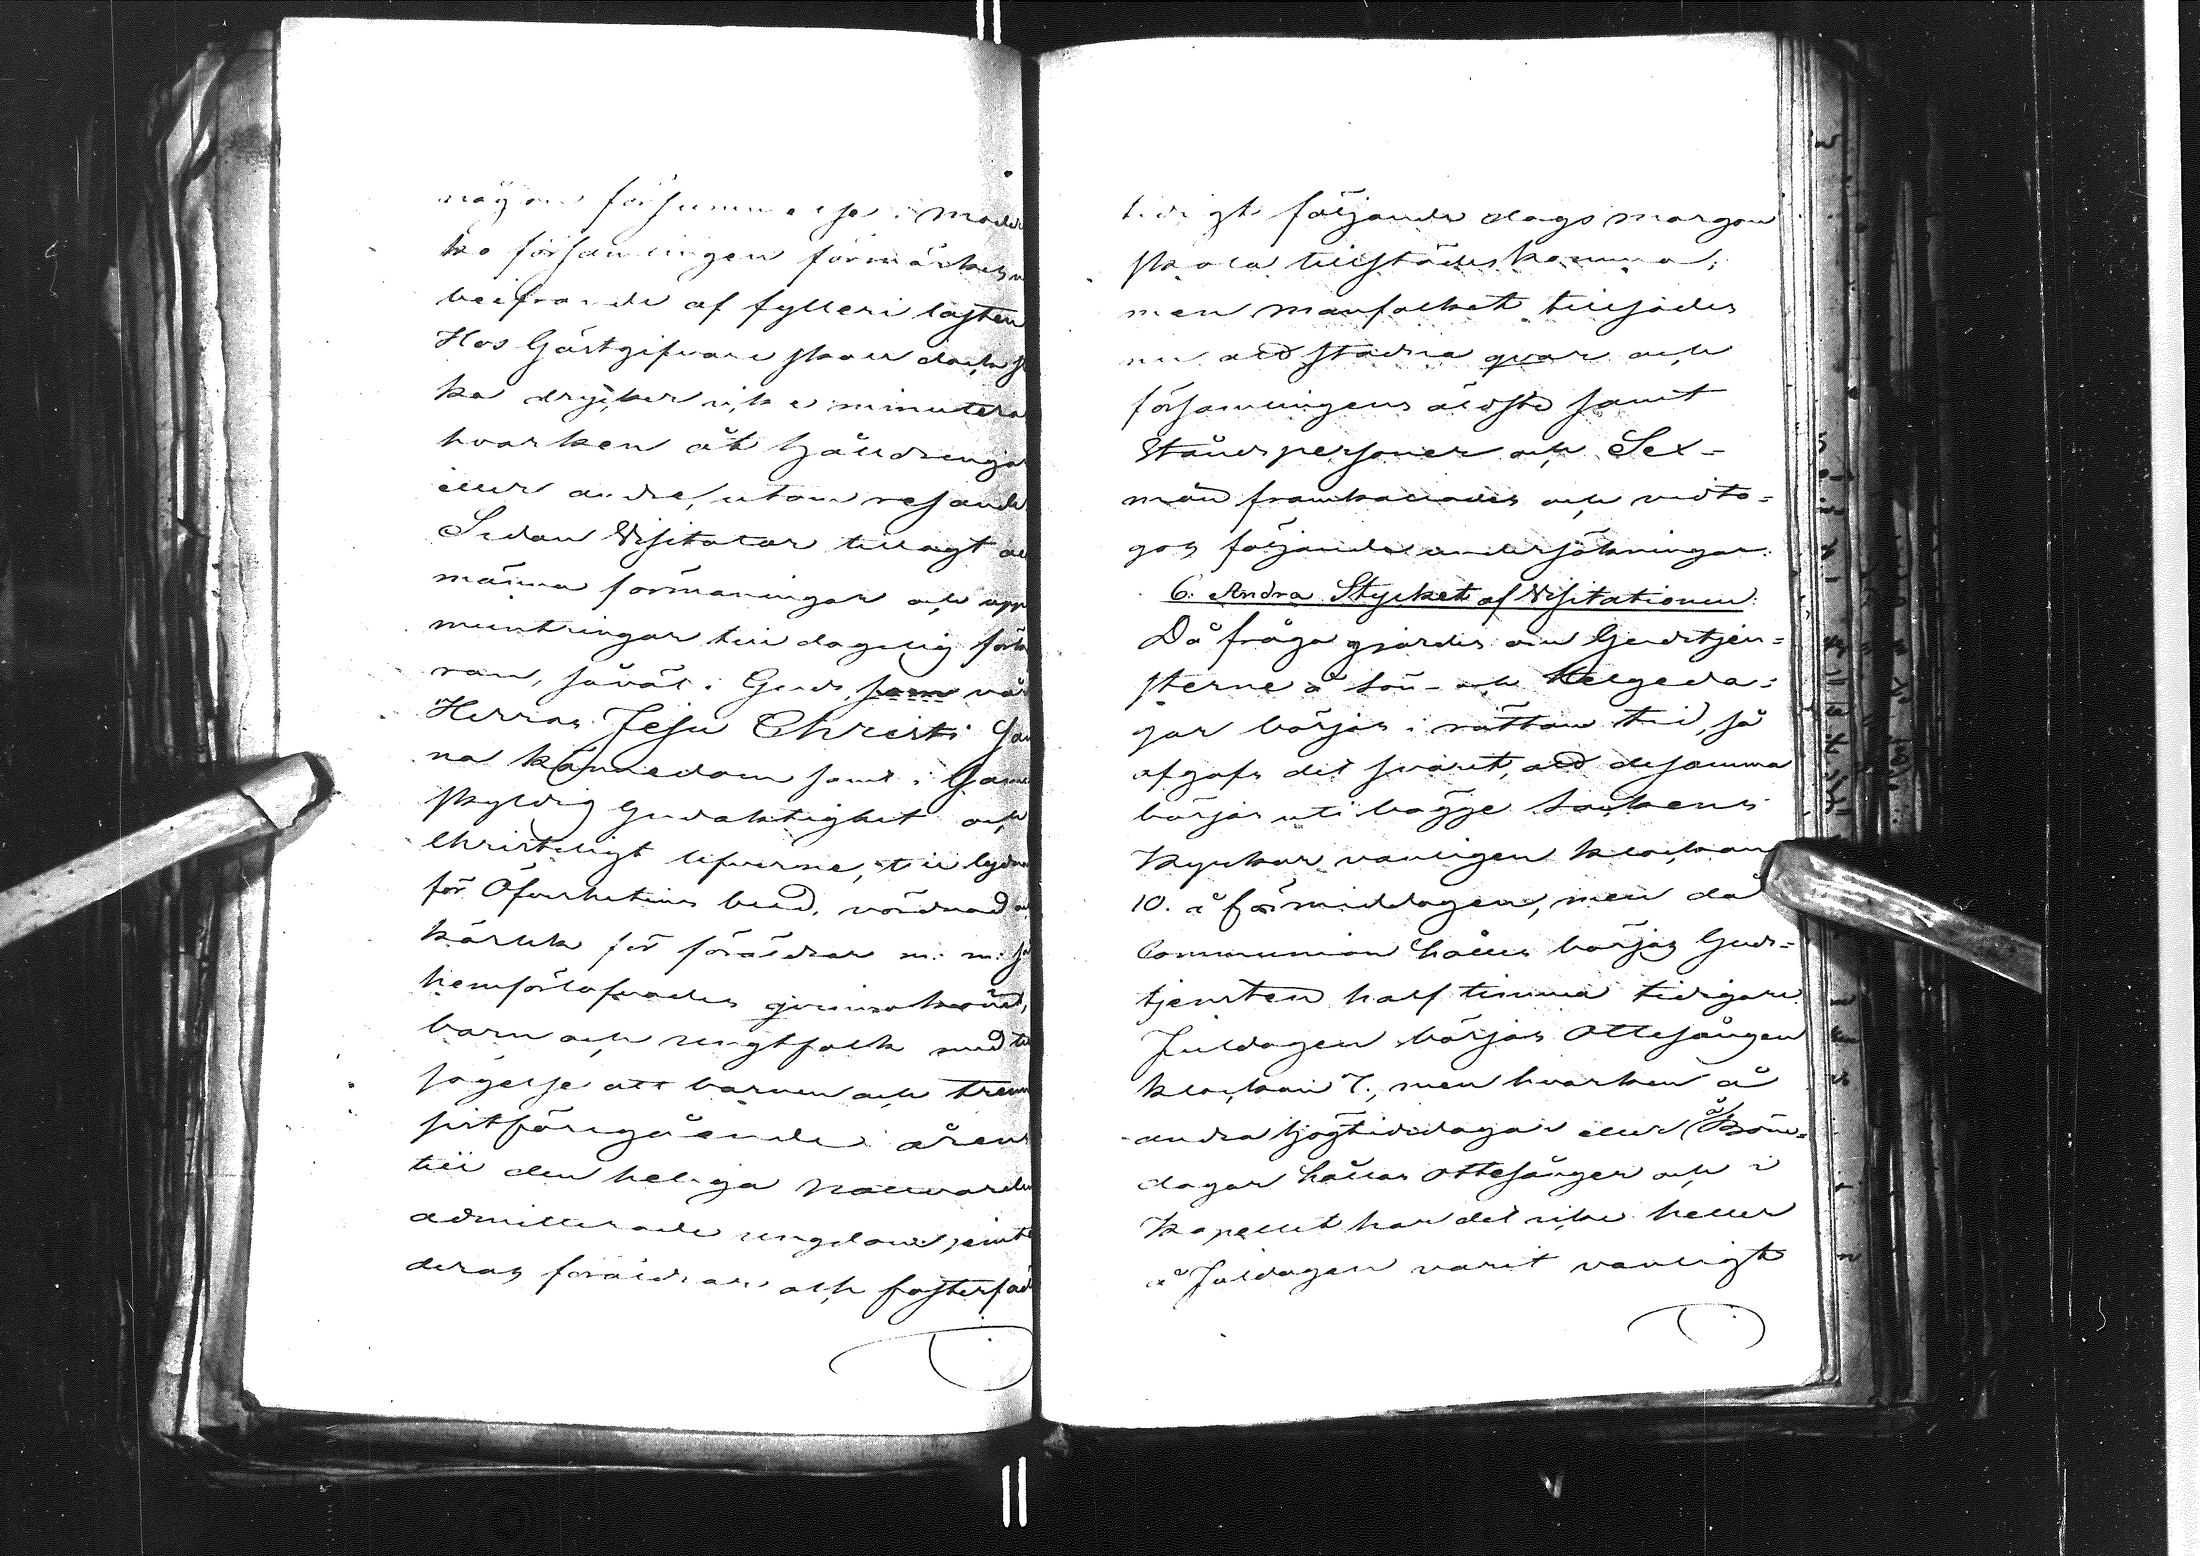 någon försummelse i Moder
ko församlingen förmärkes
beifrande af fylleri lasten
Hos Gästgifvare skall dock
ka drycker icke minuteras
hvarken åt hjälldrengar
eller andre, utom resande
Sedan Visitator tillagt all
männa förmaningar och upp
muntringar till dagelig förko
ran, såväl i Guds som vår
Herras Jesu Christi San
na kännedom samt i Gam
skyldig Gudaktighet och
Christeligt lefverne, till lydna
för Öfverhetens bud, vördnad
kärlek för föräldrar m: m:
hemförlofvades qvinnokönet,
barn och ungtfolk med til
sägelse att barnen och trenne
sistföregående årens
till den heliga nattvarden
admitterade ungdom jemte
deras föräldrar och fosterfäd
tidigt följande dags morgon
skola tillstädeskomma;
men manfolket tillsades
nu att stadna qvar och
församlingens äldste samt
Ståndspersoner och Sex-
män framkallades och vidto=
gos följande undersökningar.
6. Andra Stycket af Visitationen:
Då fråga gjordes om Gudstjen=
sterne å sön- och Helgeda=
gar börjas i rättan tid, så
afgafs det svaret, att desamma
börjas uti bägge Sockens
Kyrkor vanligen klockan
10. å förmiddagen, men då
Communion hålles börjas Guds=
tjensten half timma tidigare
Juldagen börjas Ottesången
klockan 7., men hvarken å
andra högtidsdagar eller å Böne=
dagar hållas Ottesånger och i
Kapellet har det icke heller
å Juldagen varit vanligt